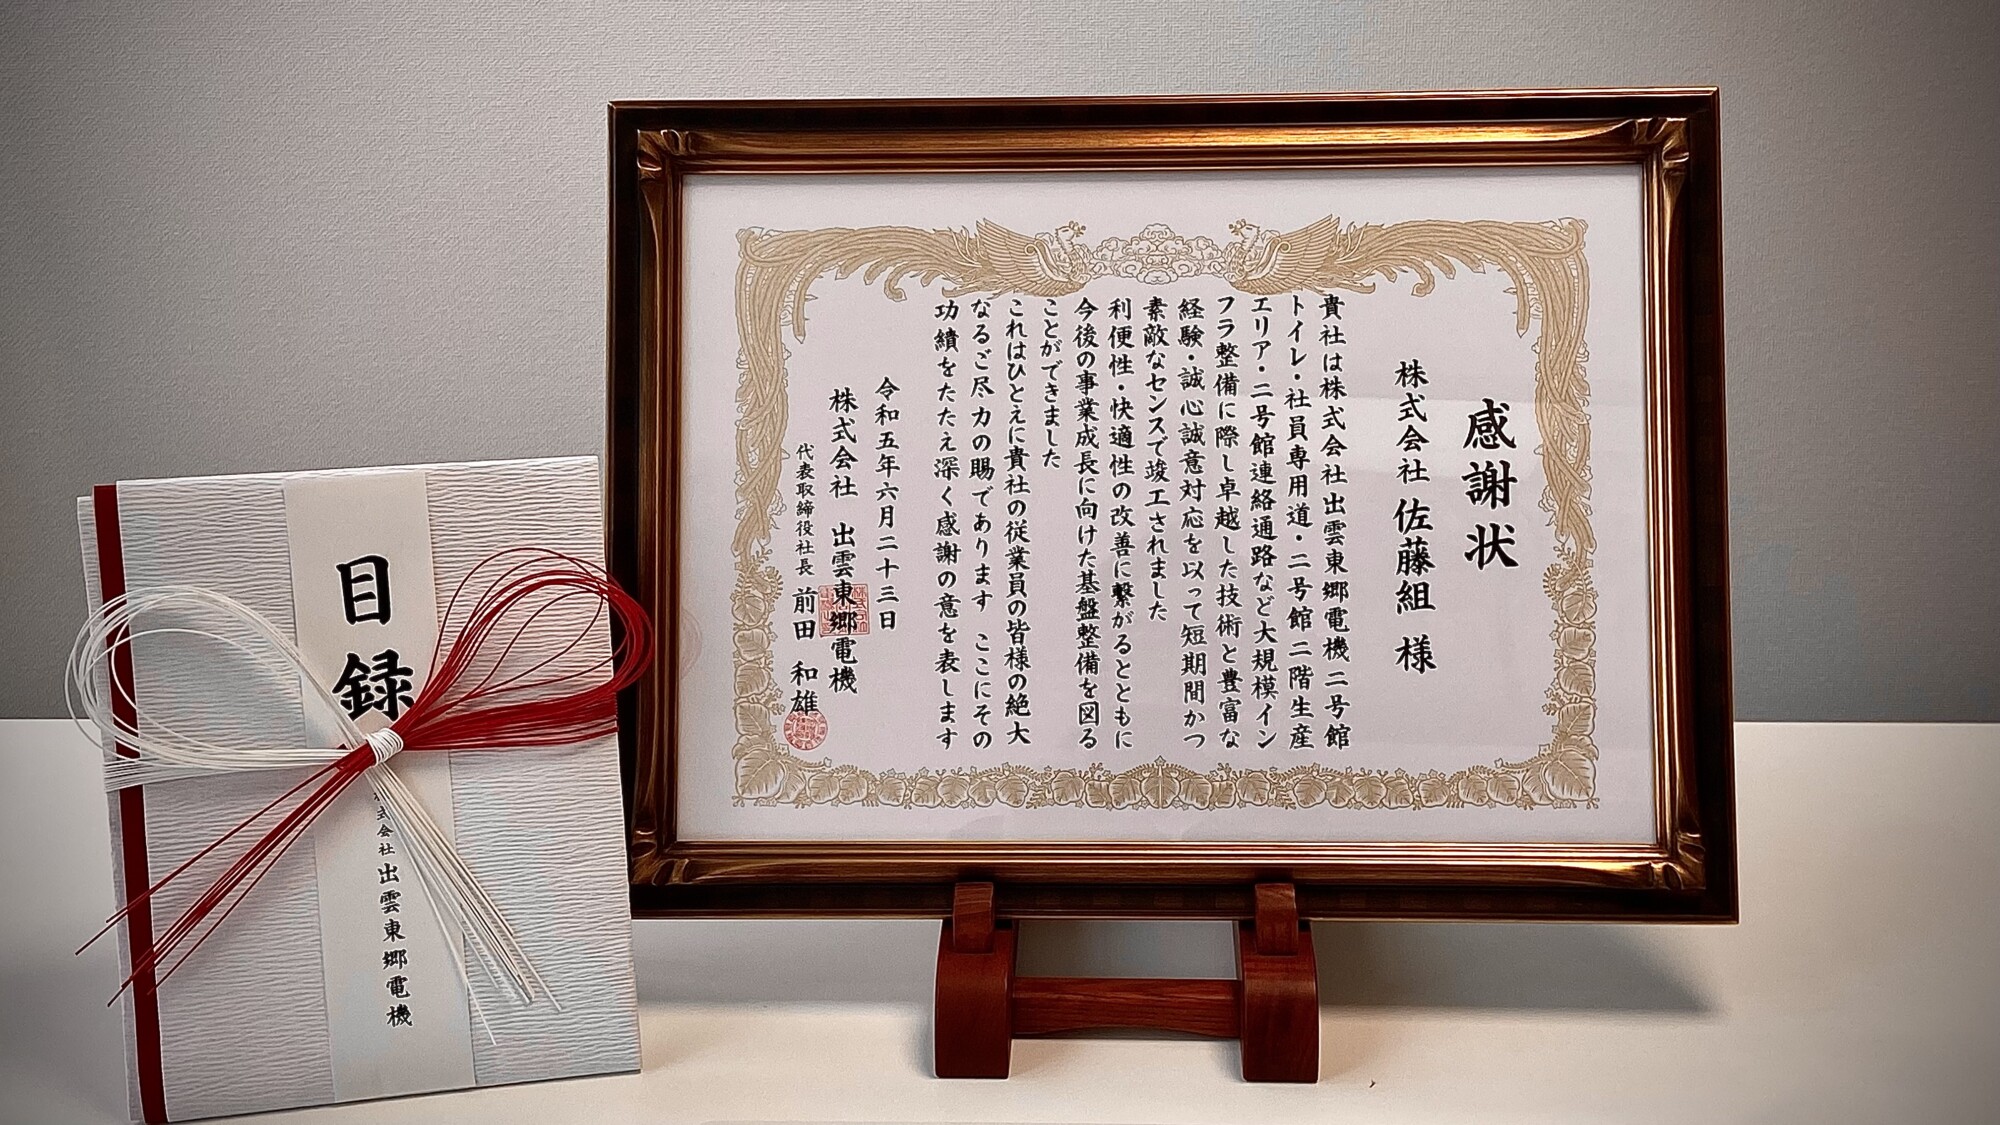 感謝状
株式会社 佐藤組 様
貴社は株式会社出雲東郷電機二号館
トイレ・社員専用道・二号館二階生産
エリア・二号館連絡通路など大規模イン
フラ整備に際し卓越した技術と豊富な
経験・誠心誠意対応を以って短期間かつ
素敵なセンスで竣工されました
利便性・快適性の改善に繋がるとともに
今後の事業成長に向けた基盤整備を図る
ことができました
これはひとえに貴社の従業員の皆様の絶大
なるご尽力の賜であります ここにその
功績をたたえ深く感謝の意を表します
令和五年六月二十三日
株式会社 出雲東郷電機
代表取締役社長 前田 和雄
目録
株式会社 出雲東郷電機